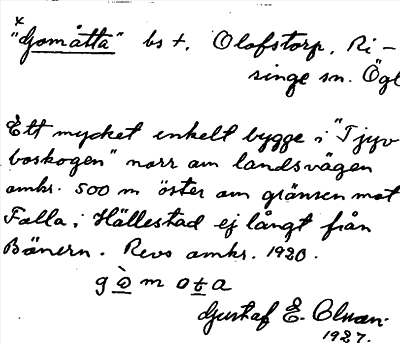 x
"Gomåtta" bs t. Olofstorp, Ri-
singe sn. Ögl
Ett mycket enkelt bygge i "Tjyv
boskogen" norr om landsvägen
omkr. 500 m öster om gränsen mot
Falla, i Hällestad ej långt från
Bönern. Revs omkr. 1920.
g ò m o t a
Gustaf E.
1927.